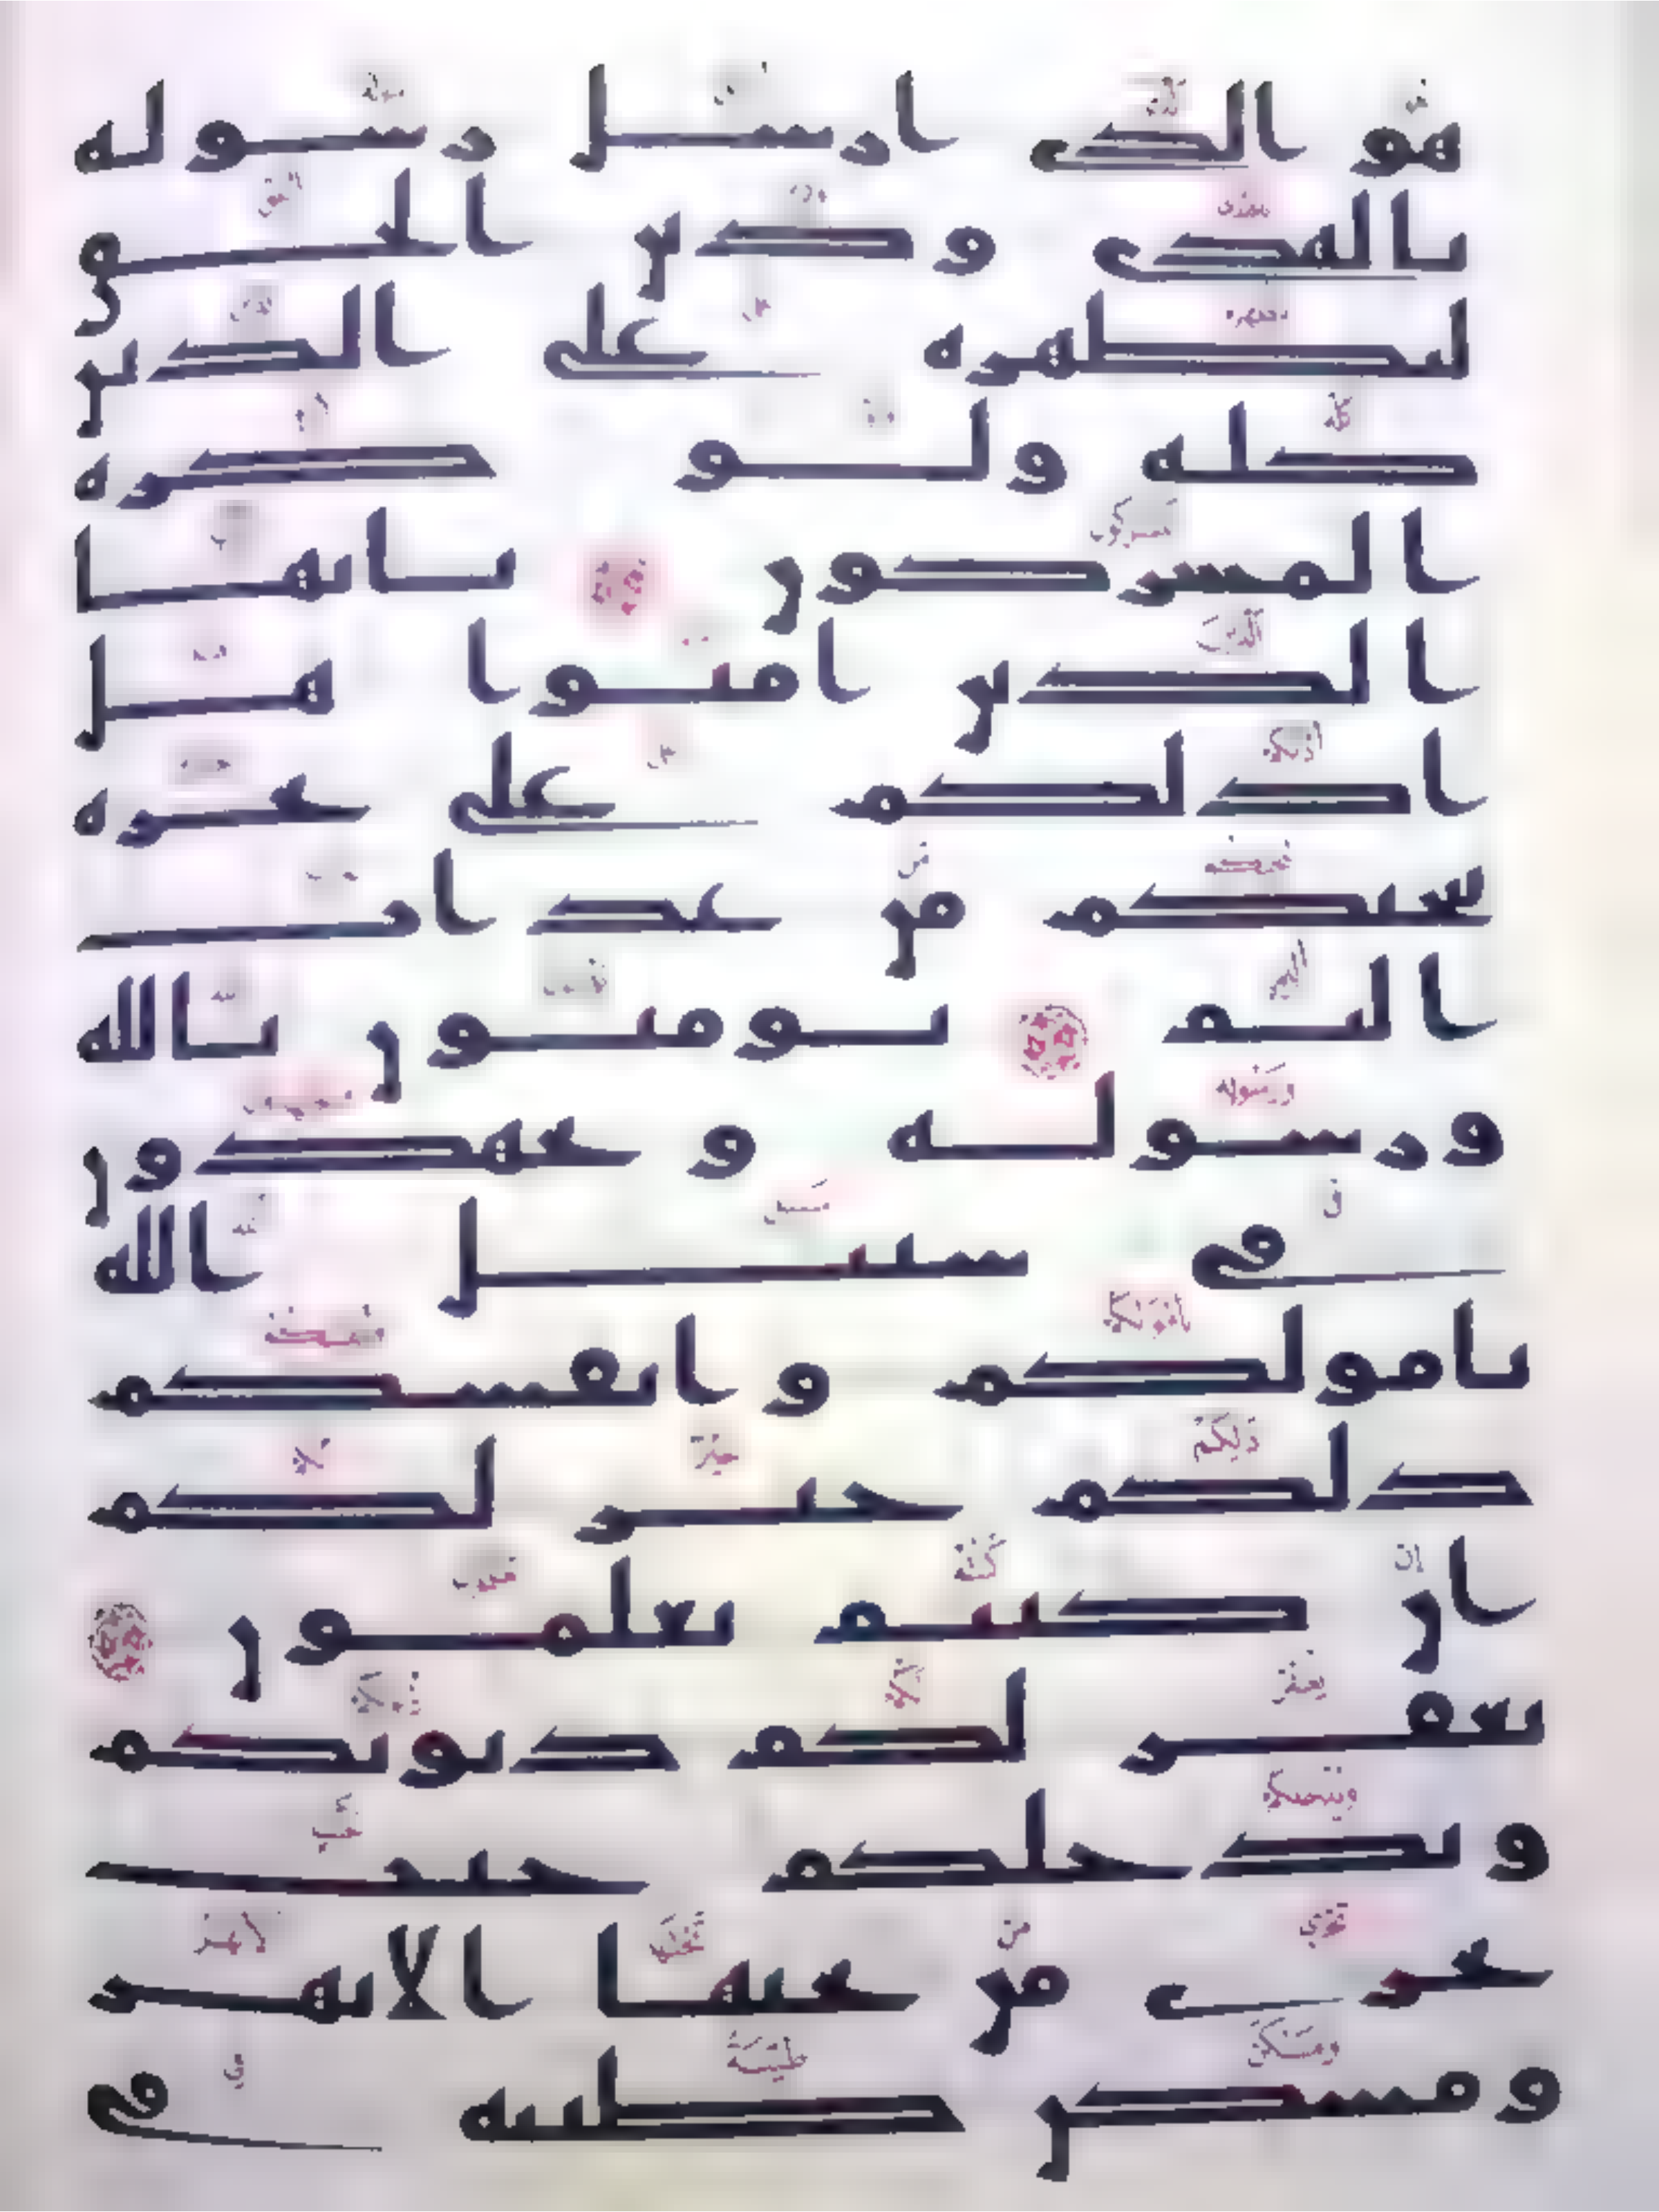 هو الذى ارسل رسوله
بالهدى ودين الحق
ليظهره على الدين
كله ولو كره
المشركون يايها
الذين امنوا هل
ادلكم على تجره
تنجيكم من عذاب
اليم تومنون بالله
ورسوله وتجهدون
فى سبيل الله
بامولكم وانفسكم
ذلكم خير لكم
ان كنتم تعلمون
يغفر لكم ذنوبكم
ويدخلكم جنت
تجرى من تحتها الانهر
ومسكن طيبه فى